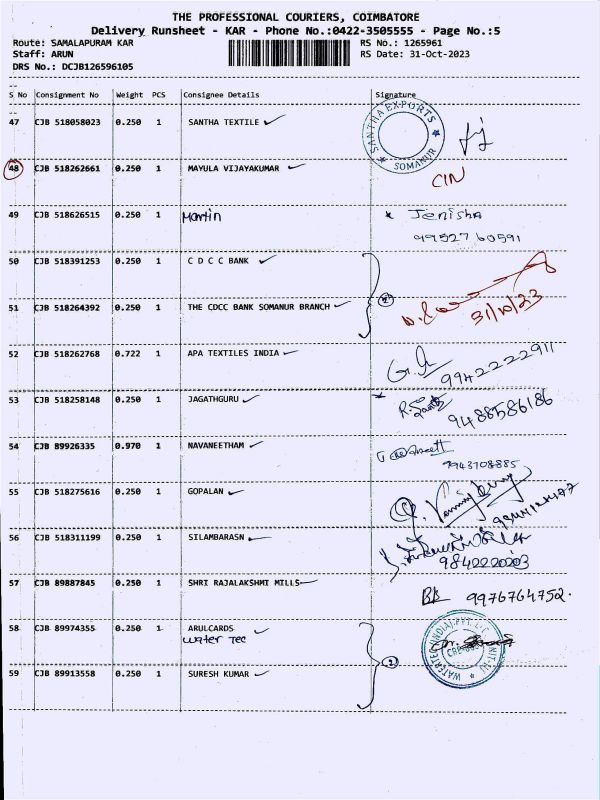 THE PROFESSIONAL COURIERS, COIMBATORE
Delivery Runsheet - KAR - Phone No.:0422-3505555 - Page No.:5
Route: SAMALAPURAM KAR RS No.: 1265961
Staff: ARUN RS Date: 31-Oct-2023
DRS No.: DCJB126596105
S No Consignment No Weight PCS Consignee Details Signature
47 CJB 518058023 0.250 1 SANTHA TEXTILE
SANTHA EXPORTS SOMANUR
48 CJB 518262661 0.250 1 MAYULA VIJAYAKUMAR
CIN
49 CJB 518626515 0.250 1 Martin Jenisha
99527 60591
50 CJB 518391253 0.250 1 C D C C BANK
51 CJB 518264392 0.250 1 THE CDCC BANK SOMANUR BRANCH 31/10/23
52 CJB 518262768 0.722 1 APA TEXTILES INDIA
9942222911
53 CJB 518258148 0.250 1 JAGATHGURU
9488586186
54 CJB 89926335 0.970 1 NAVANEETHAM
9943708885
55 CJB 518275616 0.250 1 GOPALAN
56 CJB 518311199 0.250 1 SILAMBARASN
9842220203
57 CJB 89887845 0.250 1 SHRI RAJALAKSHMI MILLS
9976764752.
58 CJB 89974355 0.250 1 ARULCARDS
water Tec
59 CJB 89913558 0.250 1 SURESH KUMAR
2